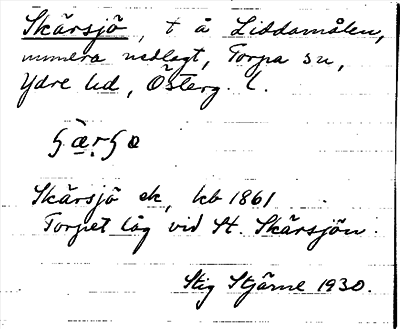 Skärsjö, t å Liddamålen,
numera nedlagt, Torpa sn,
Ydre hd, Österg. l.
Skärsjö ek, kb 1861
Torpet låg vid St. Skärsjön.
Stig Stjärne 1930.